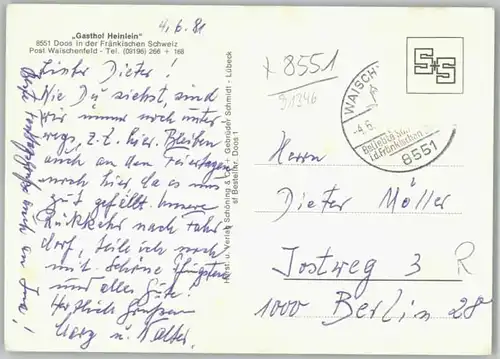 „Gasthof Heinlein"
8551 Doos in der Fränkischen Schweiz
Post Waischenfeld - Tel. (09196) 266 + 168
4.6.81
Lieber Dieter!
Wie Du siehst, sind
wir immer noch unter-
wegs, z.t. hier. Bleiben
auch an den Feiertagen
noch hier, da es uns
gut gefällt. Unsere
Rückkehr nach
dorf, teile ich noch
mit. Schöne Pfingsten
und alles Gute.
Herzlich grüssen
u. Walter.
Herst. u. Verlag Schöning & Co + Gebrüder Schmidt - Lübeck
Bestellnr. Doos 1
x 8551
91346
S+S
WAISCH
-4.6.
8551
Herrn
Dieter Möller
Jostweg 3
1000 Berlin 28
R